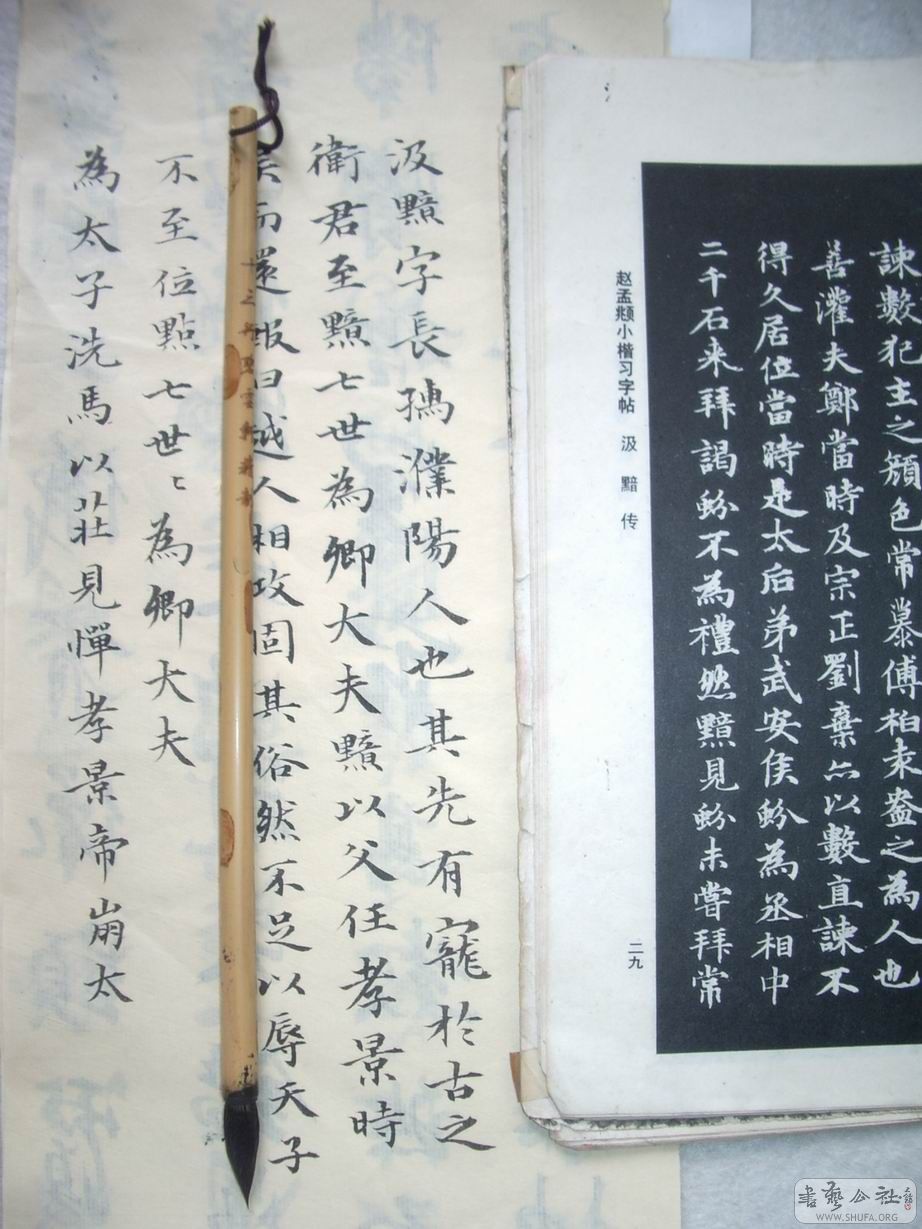 諫數犯主之顏色常慕傅柏袁盎之為人也
善灌夫鄭當時及宗正劉棄亦以數直諫不
得久居位當時是太后弟武安侯蚡為丞相中
二千石来拜謁蚡不為禮然黯見蚡未嘗拜常
赵孟頫小楷习字帖 汲黯传
二九
汲黯字長孺濮陽人也其先有寵於古之
衛君至黯七世為卿大夫黯以父任孝景時
吳而還報曰越人相攻固其俗然不足以辱天子
不至位點七世〻為卿大夫
為太子洗馬以莊見憚孝景帝崩太
書藝公社
WWW.SHUFA.ORG